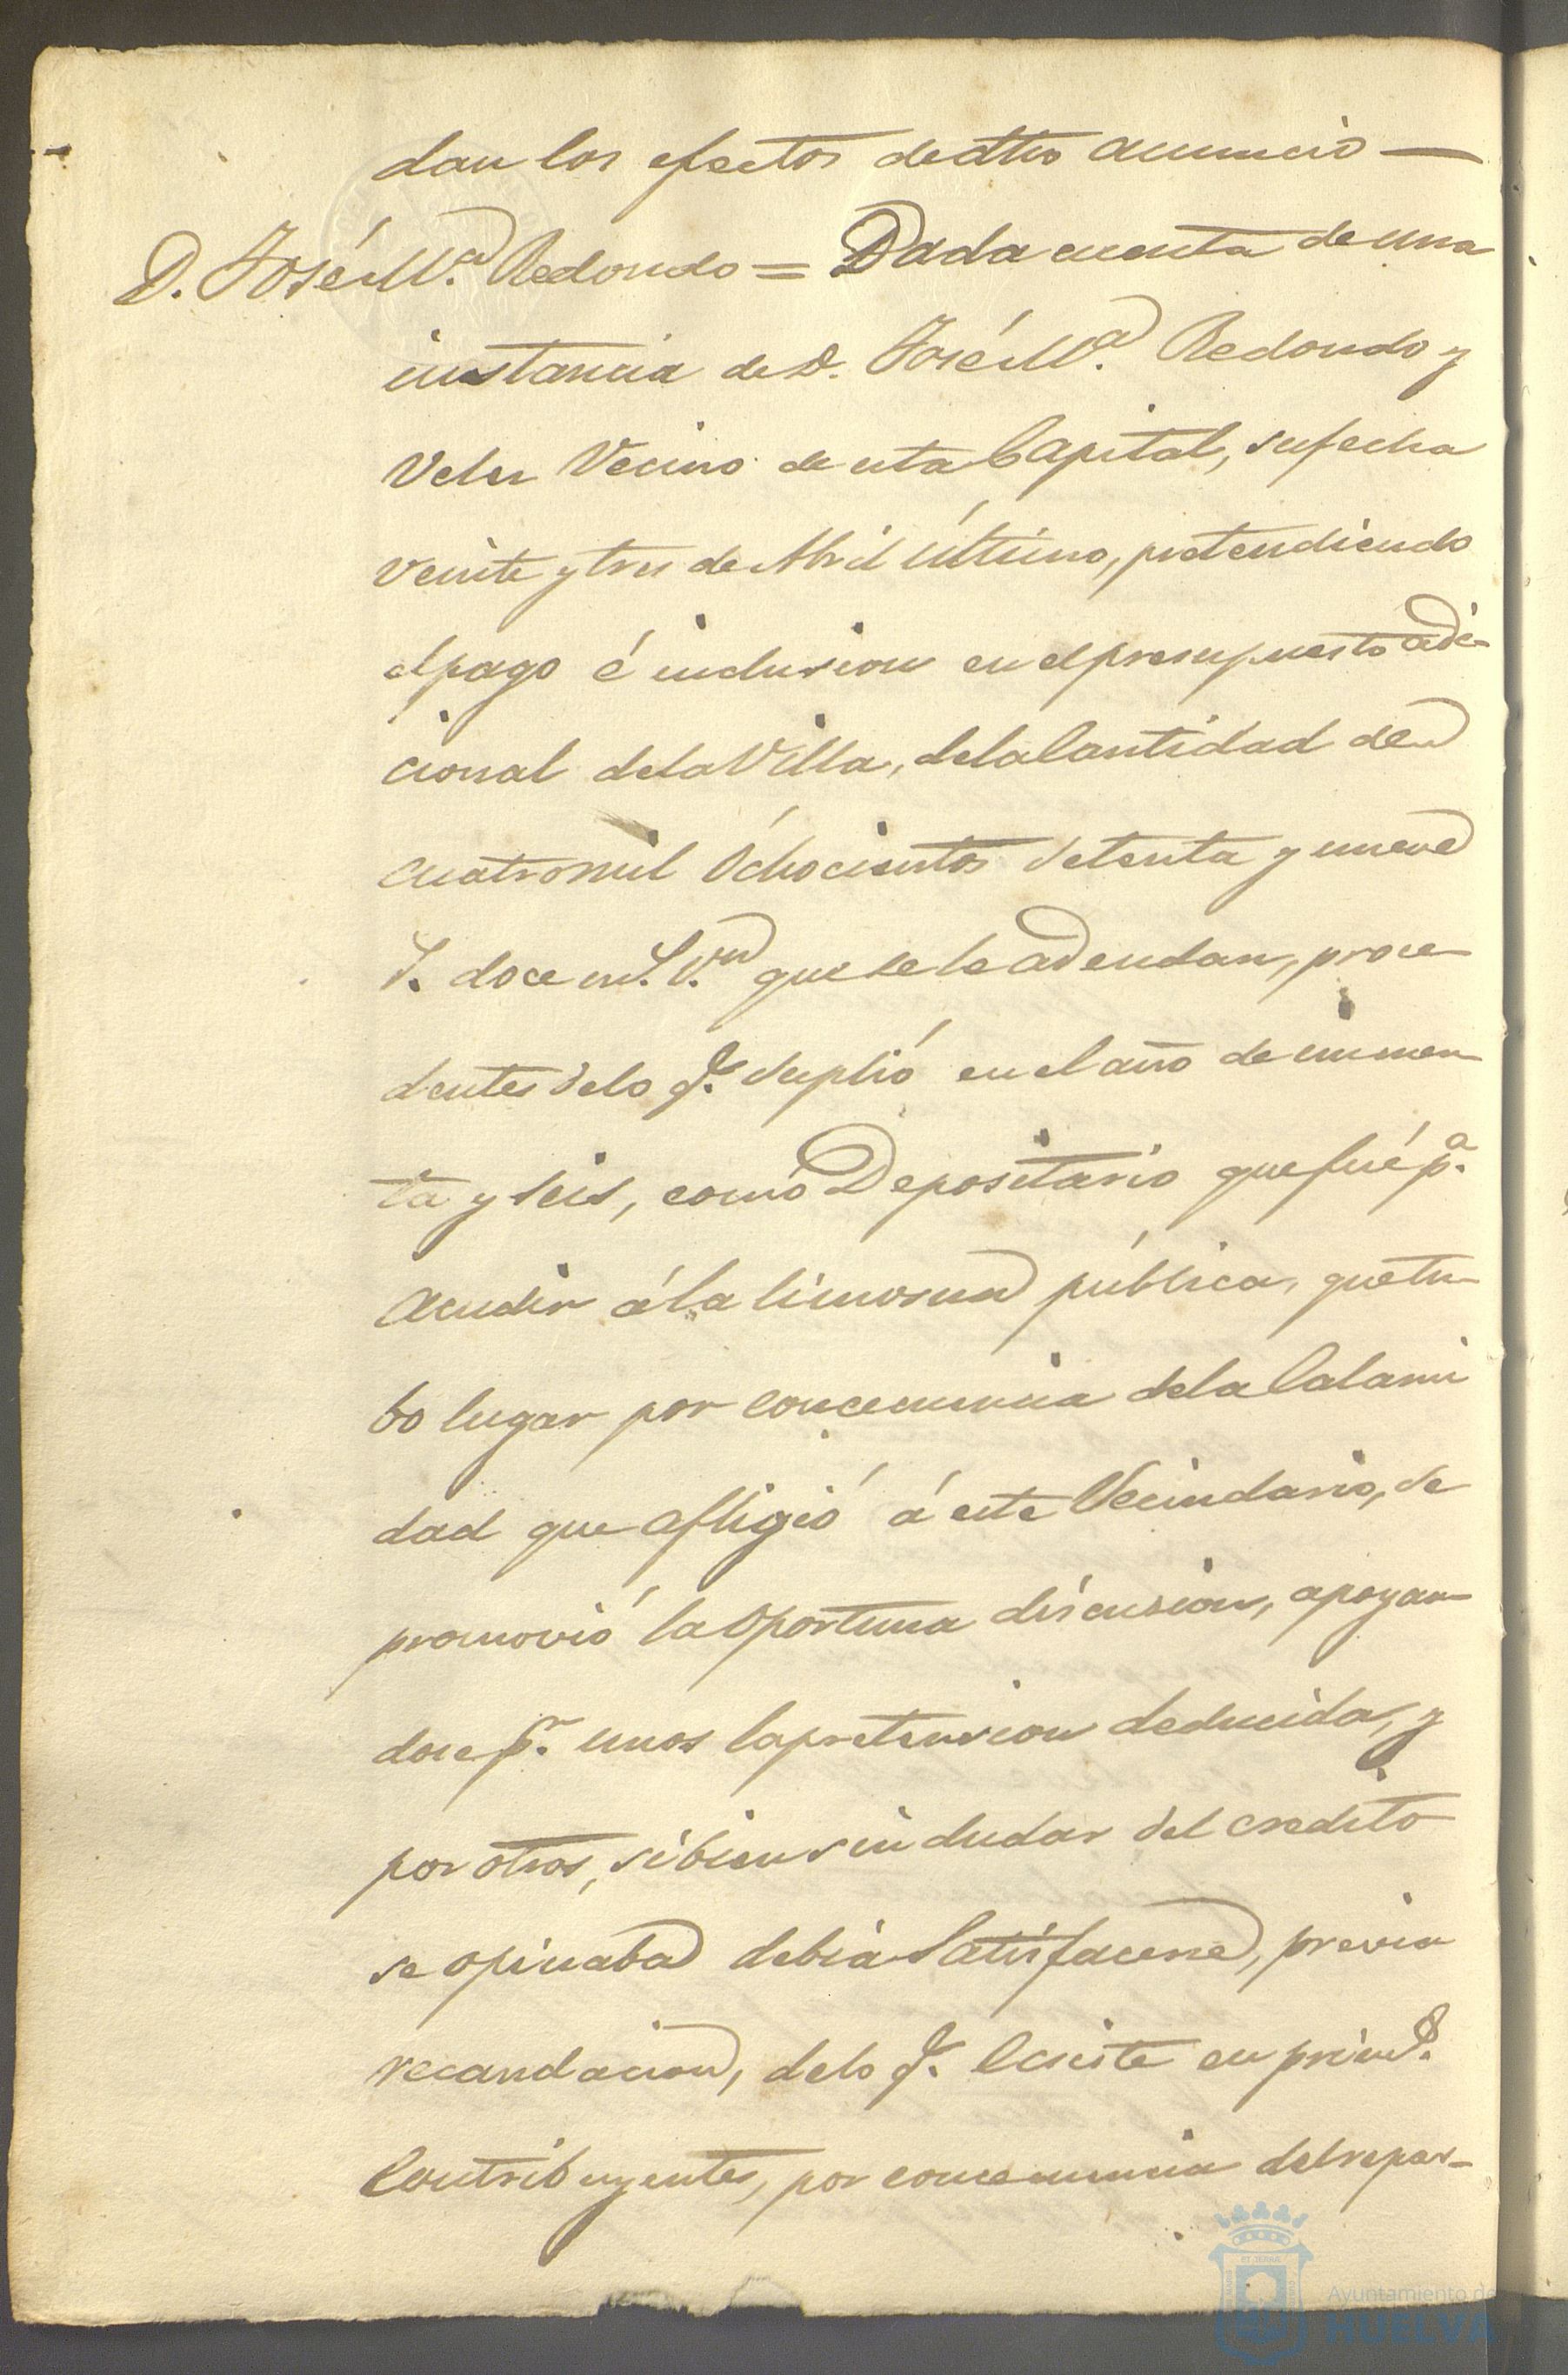 dan los efectos de dho anuncio —
D. José M.ª Redondo = Dada cuenta de una
instancia de D. José M.ª Redondo y
Veles Vecino de esta Capital, su fecha
veinte y tres de Abril último, pretendiendo
el pago é inclusion en el presupuesto adi-
cional de la Villa, de la Cantidad de
cuatro mil Ochocientos Setenta y nueve
r. doce m.s v.n que se le adeudan, proce-
dentes de lo q.e Suplió en el año de cincuen-
ta y seis, como Depositario que fué p.ª
acudir á la limosna pública, que tu-
bo lugar por concecuencia de la Calami
dad que afligió á este Vecindario, se
promovió la Oportuna discusion, apoyan-
dose p.r unos la pretension deducida, y
por otros, si bien sin dudar del credito
se opinaba debia Satisfacerse, previa
recaudacion, de lo q.eEcsiste en prim.s
Contribuyentes, por concecuencia del repar-
Ayuntamiento de
HUELVA